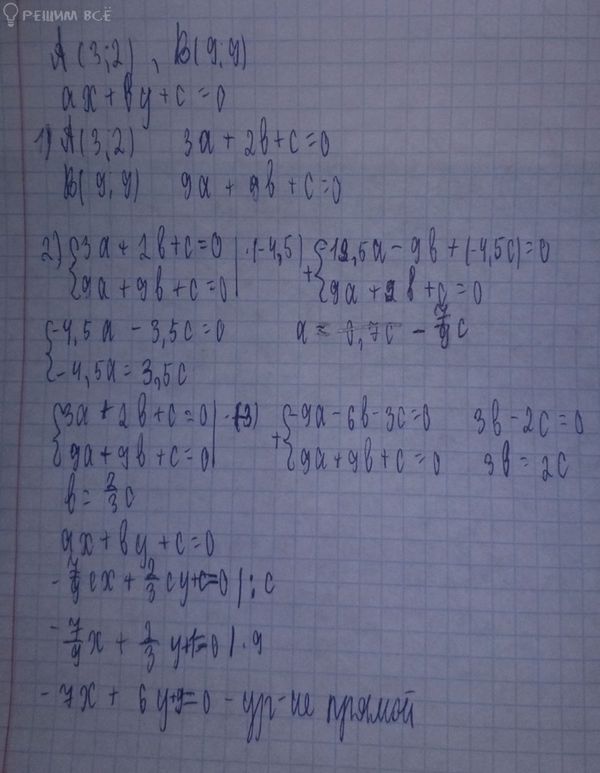 РЕШИМ ВСЁ
A(3;2), B(9;9)
ax+by+c=0
1) A(3;2) 3a+2b+c=0
B(9;9) 9a+9b+c=0
2) {3a+2b+c=0 |·(-4,5) + {12,5a-9b+(-4,5c)=0
{9a+9b+c=0 | {9a+9b+c=0
{-4,5a-3,5c=0 a= 0,7c -7/9c
{-4,5a=3,5c
{3a+2b+c=0 |·(-3) + {-9a-6b-3c=0 3b-2c=0
{9a+9b+c=0 | {9a+9b+c=0 3b=2c
b=2/3c
ax+by+c=0
-7/9cx+2/3cy+c=0 |:c
-7/9x+2/3y+1=0 |·9
-7x+6y+9=0 - ур-ие прямой